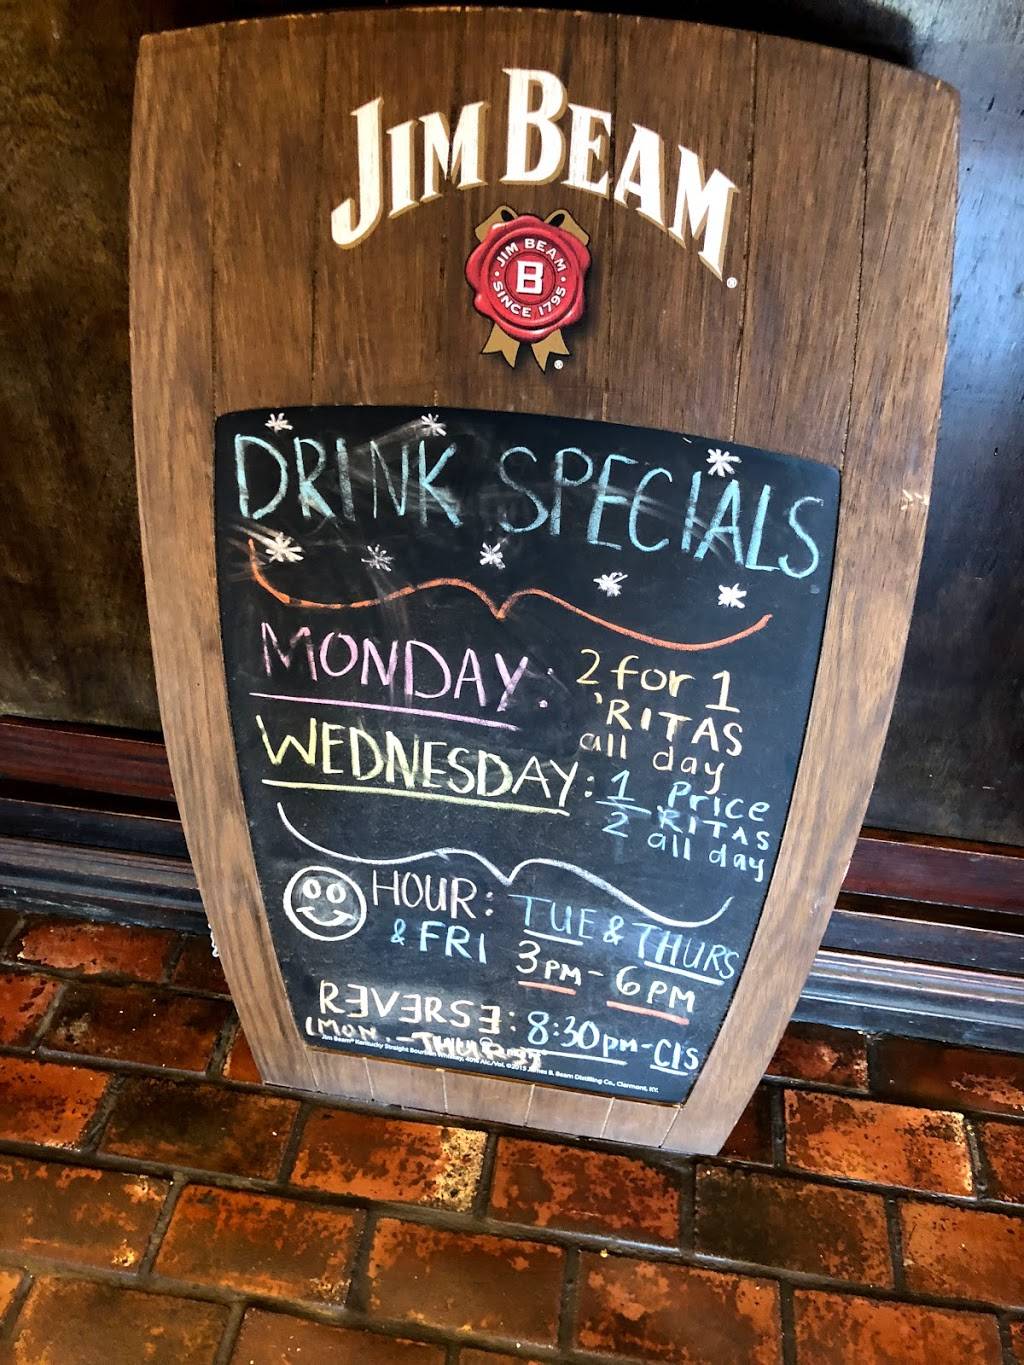 JIM BEAM
®
JIM BEAM
B
SINCE 1795
®
DRINK SPECIALS
MONDAY: 2 for 1
'RITAS
all day
WEDNESDAY: 1/2 Price
RITAS
all day
HOUR: TUE & THURS
& FRI 3PM - 6PM
REVERSE: 8:30pm - Cls
(MON. - THURS)
Jim Beam® Kentucky Straight Bourbon Whiskey, 40% Alc./Vol. ©2015 James B. Beam Distilling Co., Clermont, KY.